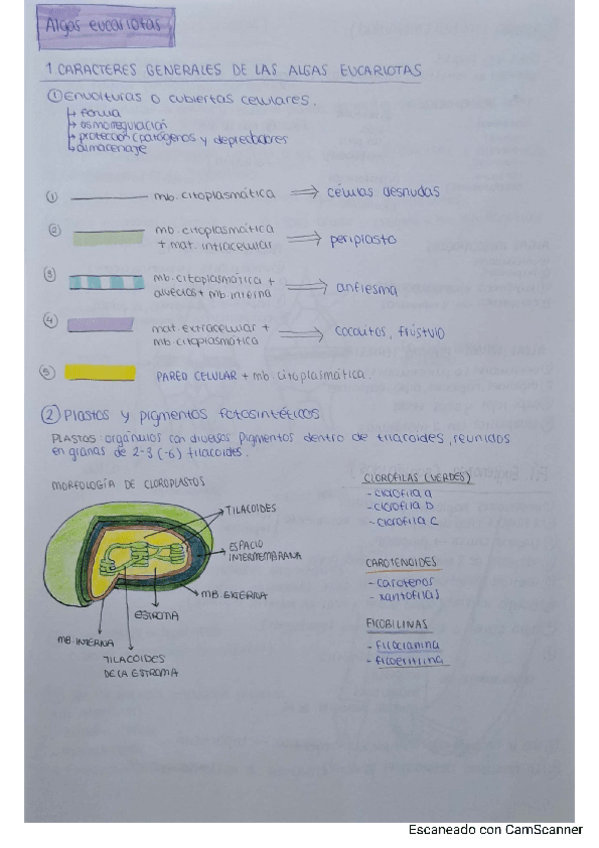 Algas eucariotas
1 CARACTERES GENERALES DE LAS ALGAS EUCARIOTAS
① Envolturas o cubiertas celulares.
↳ forma
↳ osmorregulación
↳ protección (patógenos y depredadores
↳ almacenaje
① mb. citoplasmática ⇒ células desnudas
② mb. citoplasmática
+ mat. intracelular ⇒ periplasto
③ mb. citoplasmática +
alveolos + mb interna ⇒ anfiesma
④ mat. extracelular +
mb. citoplasmática ⇒ cocolitos, frústulo
⑤ PARED CELULAR + mb. citoplasmática
② Plastos y pigmentos fotosintéticos
PLASTOS: orgánulos con diversos pigmentos dentro de tilacoides, reunidos
en granas de 2-3 (-6) tilacoides.
MORFOLOGÍA DE CLOROPLASTOS
TILACOIDES
ESPACIO
INTERMEMBRANA
MB. EXTERNA
ESTROMA
MB. INTERNA
TILACOIDES
DE LA ESTROMA
CLOROFILAS (VERDES)
- clorofila a
- clorofila b
- clorofila c
CAROTENOIDES
- carotenos
- xantofilas
FICOBILINAS
- ficocianina
- ficoeritrina
Escaneado con CamScanner